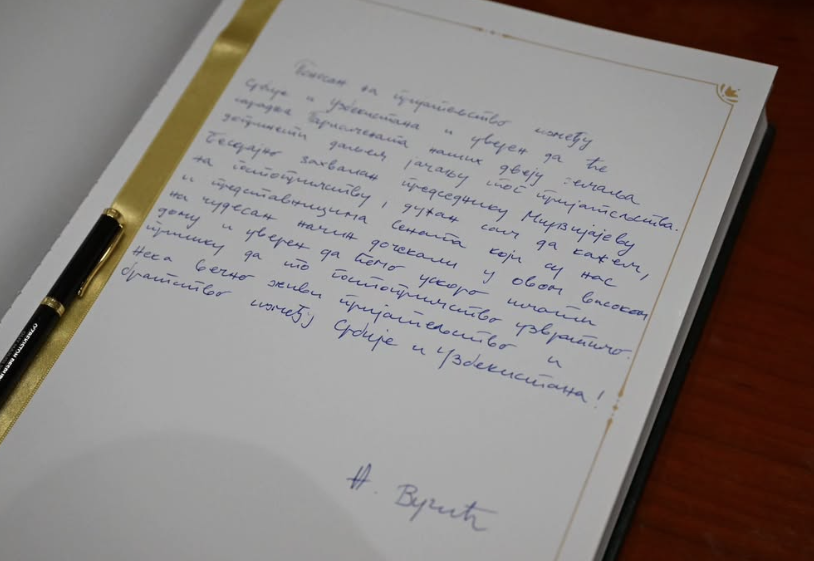 Поносан на пријатељство између
Србије и Узбекистана и уверен да ће
парламената наших двеју земаља
допринети даљем јачању тог пријатељства.
Бескрајно захвалан председнику Мирзијајеву
на гостопримству, дужан сам да кажем,
и представницима Сената који су нас
на чудесан начин дочекали у овом високом
дому и уверен да ћемо ускоро имати
прилику да то гостопримство узвратимо.
Нека вечно живи пријатељство и
братство између Србије и Узбекистана!
А. Вучић